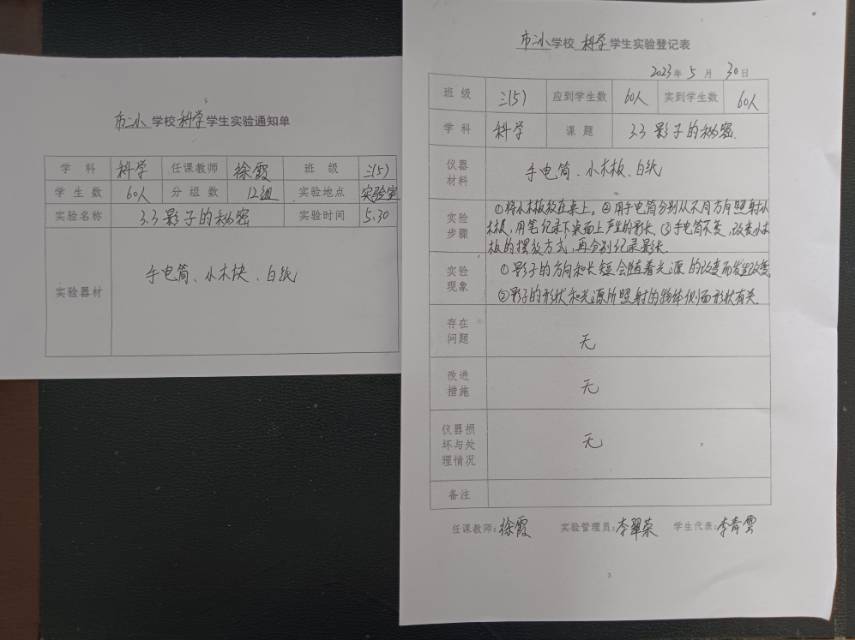 市二小学校科学学生实验通知单
学 科 科学 任课教师 徐霞 班 级 三(5)
学生数 60人 分组数 12组 实验地点 实验室
实验名称 3.3影子的秘密 实验时间 5.30
实验器材 手电筒、小木块、白纸
市二小学校 科学 学生实验登记表
2023年5月30日
班 级 三(5) 应到学生数 60人 实到学生数 60人
学 科 科学 课 题 3.3影子的秘密
仪器材料 手电筒、小木板、白纸
实验步骤 ①将小木板放在桌上。②用手电筒分别从不同方向照射小
木板,用笔纪录下桌面上产生的影长。③手电筒不变,改变小木
板的摆放方式,再分别纪录影长。
实验现象 ①影子的方向和长短会随着光源的改变而发生改变
②影子的形状和光源所照射的物体侧面形状有关
存在问题 无
改进措施 无
仪器损坏与处理情况 无
备注
任课教师:徐霞 实验管理员:李翠荣 学生代表:李青云